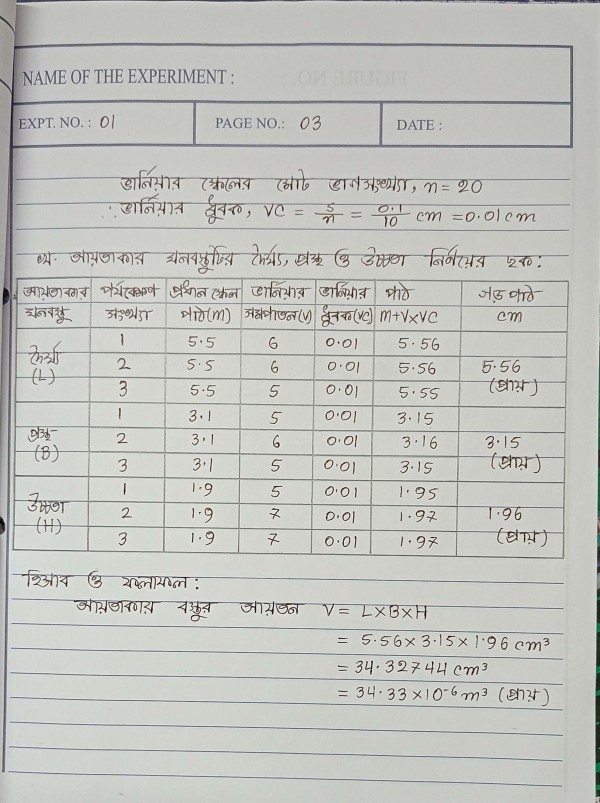 NAME OF THE EXPERIMENT :
EXPT. NO. : 01 PAGE NO.: 03 DATE :
ভার্নিয়ার স্কেলের মোট ভাগসংখ্যা, n = 20
∴ ভার্নিয়ার ধ্রুবক, VC = s/n = 0.1/10 cm = 0.01 cm
আয়তাকার ঘনবস্তুটির দৈর্ঘ্য, প্রস্থ ও উচ্চতা নির্ণয়ের ছক :
আয়তাকার পর্যবেক্ষণ প্রধান স্কেল ভার্নিয়ার ভার্নিয়ার পাঠ গড় পাঠ
ঘনবস্তু সংখ্যা পাঠ(M) সমপাতন(V) ধ্রুবক(VC) M+V×VC cm
1 5.5 6 0.01 5.56
দৈর্ঘ্য (L) 2 5.5 6 0.01 5.56 5.56 (প্রায়)
3 5.5 5 0.01 5.55
1 3.1 5 0.01 3.15
প্রস্থ (B) 2 3.1 6 0.01 3.16 3.15 (প্রায়)
3 3.1 5 0.01 3.15
1 1.9 5 0.01 1.95
উচ্চতা (H) 2 1.9 7 0.01 1.97 1.96 (প্রায়)
3 1.9 7 0.01 1.97
হিসাব ও ফলাফল :
আয়তাকার বস্তুর আয়তন V = L×B×H
= 5.56 × 3.15 × 1.96 cm³
= 34.32744 cm³
= 34.33 × 10⁻⁶ m³ (প্রায়)